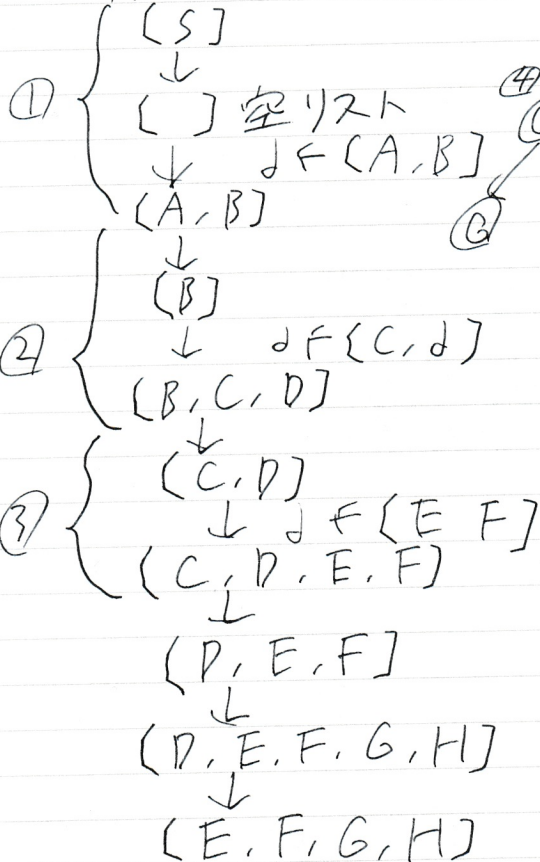 [S]
↓
① [ ] 空リスト
↓ d←[A,B]
[A,B]
↓
[B]
② ↓ d←[C,d]
[B,C,D]
↓
[C,D]
③ ↓ d←[E F]
[C,D,E,F]
↓
[D,E,F]
↓
[D,E,F,G,H]
↓
[E,F,G,H]
④
G